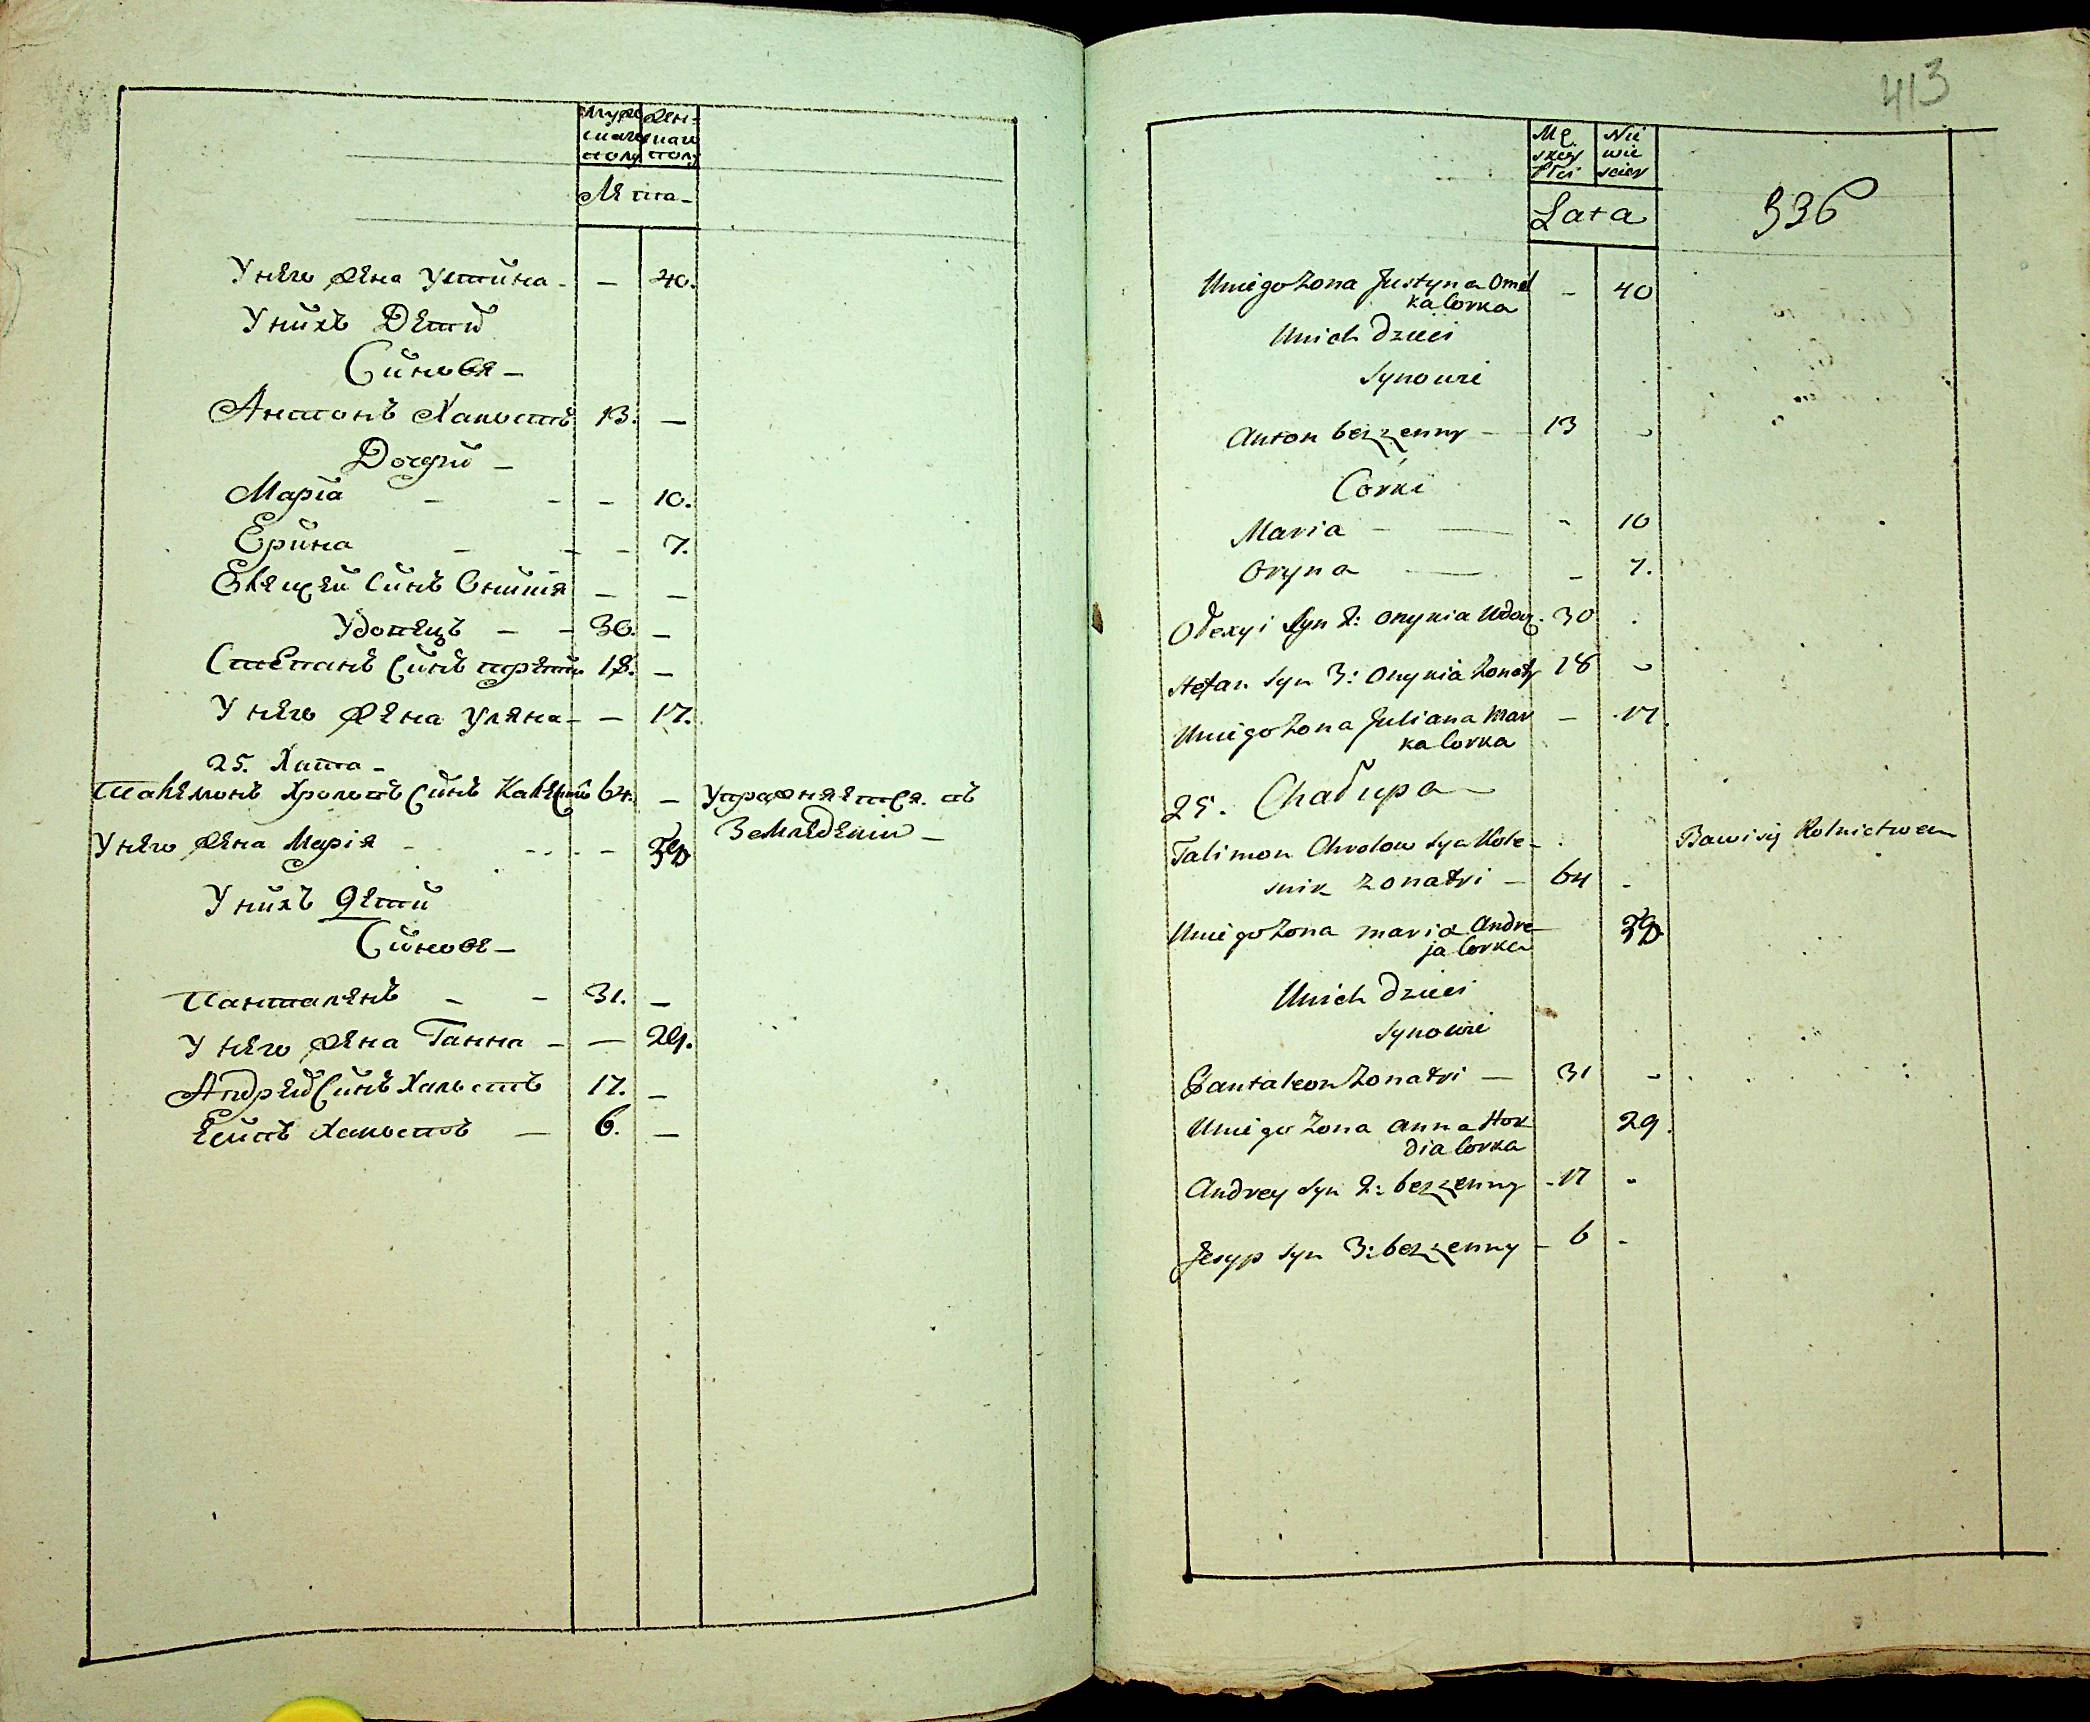 Муже
скаго
полу
Жен-
скаго
полу
Лѣта
Унего жена Устина - — 40.
Унихъ Дети
Синовя
Антонъ Халостъ 13. —
Дочери
Марїа - - — 10.
Ерина - - - 7.
Синъ Онипїя — —
Удовецъ - - 30. —
Степанъ Синъ трети 18. —
У него жена Уляна - — 17.
25. Хата
Хролотъ Синъ 64. — Упражняется въ
Унего жена Марїя - — Земледелїи
Унихъ дети
Синове
Панталенъ - - 31. —
У него жена Ганна - — 29.
Андрей Синъ Халостъ 17. —
Есипъ Халостъ — 6. —
413
Mę
skey
Płci
Nie
wie
sciey
Lata
336
Uniego Zona Justyna Omel
ka Corka — 40
Unich Dzieci
Synowie
Anton bezzenny — 13
Córki
Maria — - 10
Oryna — - 7.
Ołexyi Syn 2: Onykia Udow. 30
Stefan Syn 3: Onykia Zonaty 18
Uniego Zona Juliana Mar
ka Corka — 17.
25. Chałupa
Talimon Chrolow Syn Kole-
snik Zonatri — 64 - Bawi się Rolnictwem
Uniego Zona Maria Andre
ja Corka
Unich Dzieci
Synowie
Pantaleon Zonatri — 31 -
Uniego Zona Anna Hor
dia Corka 29.
Andrey Syn 2: bezzenny - 17 -
Jesyp Syn 3: bezzenny - 6 -